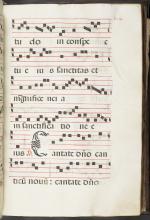 tu do in conspe c
tu e i us sanctitas et
magnifice nci a
in sanctifica tio ne e
ius Cantate dño can
ticū novū: cantate dño